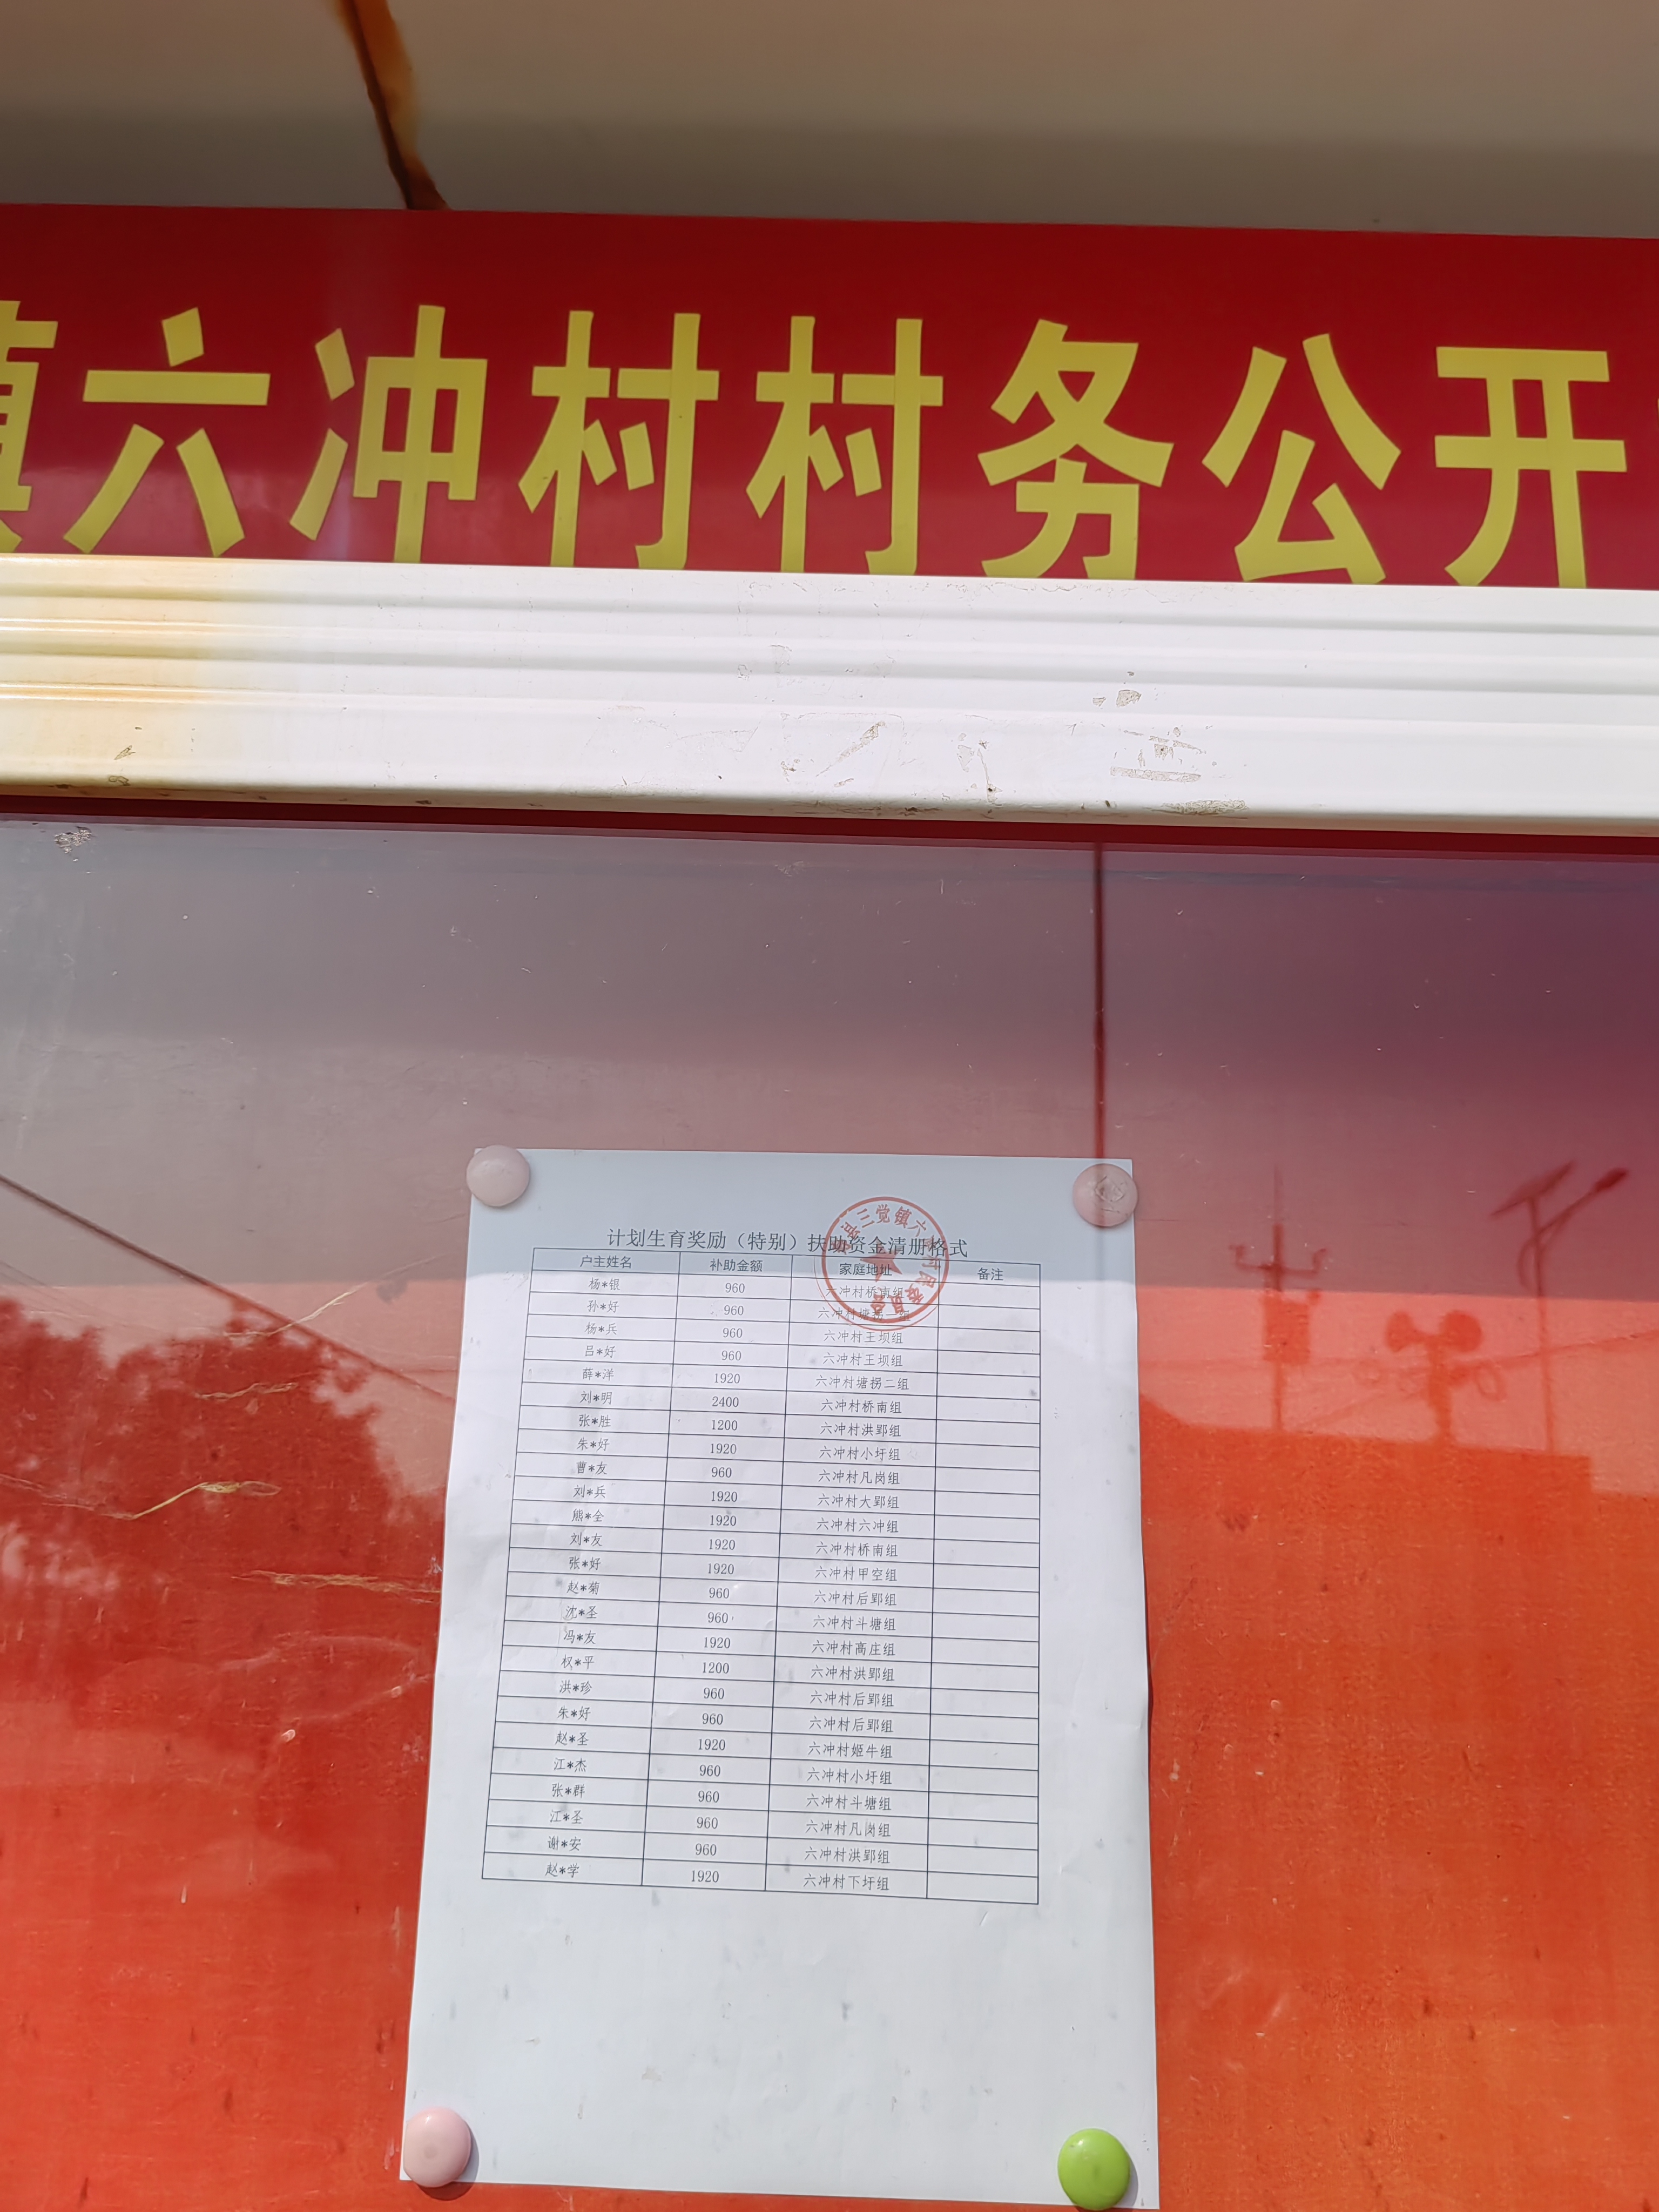 镇六冲村村务公开
计划生育奖励（特别）扶助资金清册格式
户主姓名 补助金额 家庭地址 备注
杨*银 960 六冲村桥南组
孙*好 960 六冲村塘拐一组
杨*兵 960 六冲村王坝组
吕*好 960 六冲村王坝组
薛*洋 1920 六冲村塘拐二组
刘*明 2400 六冲村桥南组
张*胜 1200 六冲村洪郢组
朱*好 1920 六冲村小圩组
曹*友 960 六冲村凡岗组
刘*兵 1920 六冲村大郢组
熊*全 1920 六冲村六冲组
刘*友 1920 六冲村桥南组
张*好 1920 六冲村甲空组
赵*菊 960 六冲村后郢组
沈*圣 960 六冲村斗塘组
冯*友 1920 六冲村高庄组
权*平 1200 六冲村洪郢组
洪*珍 960 六冲村后郢组
朱*好 960 六冲村后郢组
赵*圣 1920 六冲村姬牛组
江*杰 960 六冲村小圩组
张*群 960 六冲村斗塘组
江*圣 960 六冲村凡岗组
谢*安 960 六冲村洪郢组
赵*学 1920 六冲村下圩组
县三觉镇六冲村民委员会